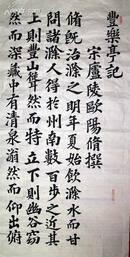 豐樂亭記
宋廬陵歐陽脩撰
脩既治滁之明年夏始飲滁水而甘
問諸滁人得於州南數百步之近其
上則豐山聳然而特立下則幽谷窈
然而深藏中有清泉滃然而仰出俯